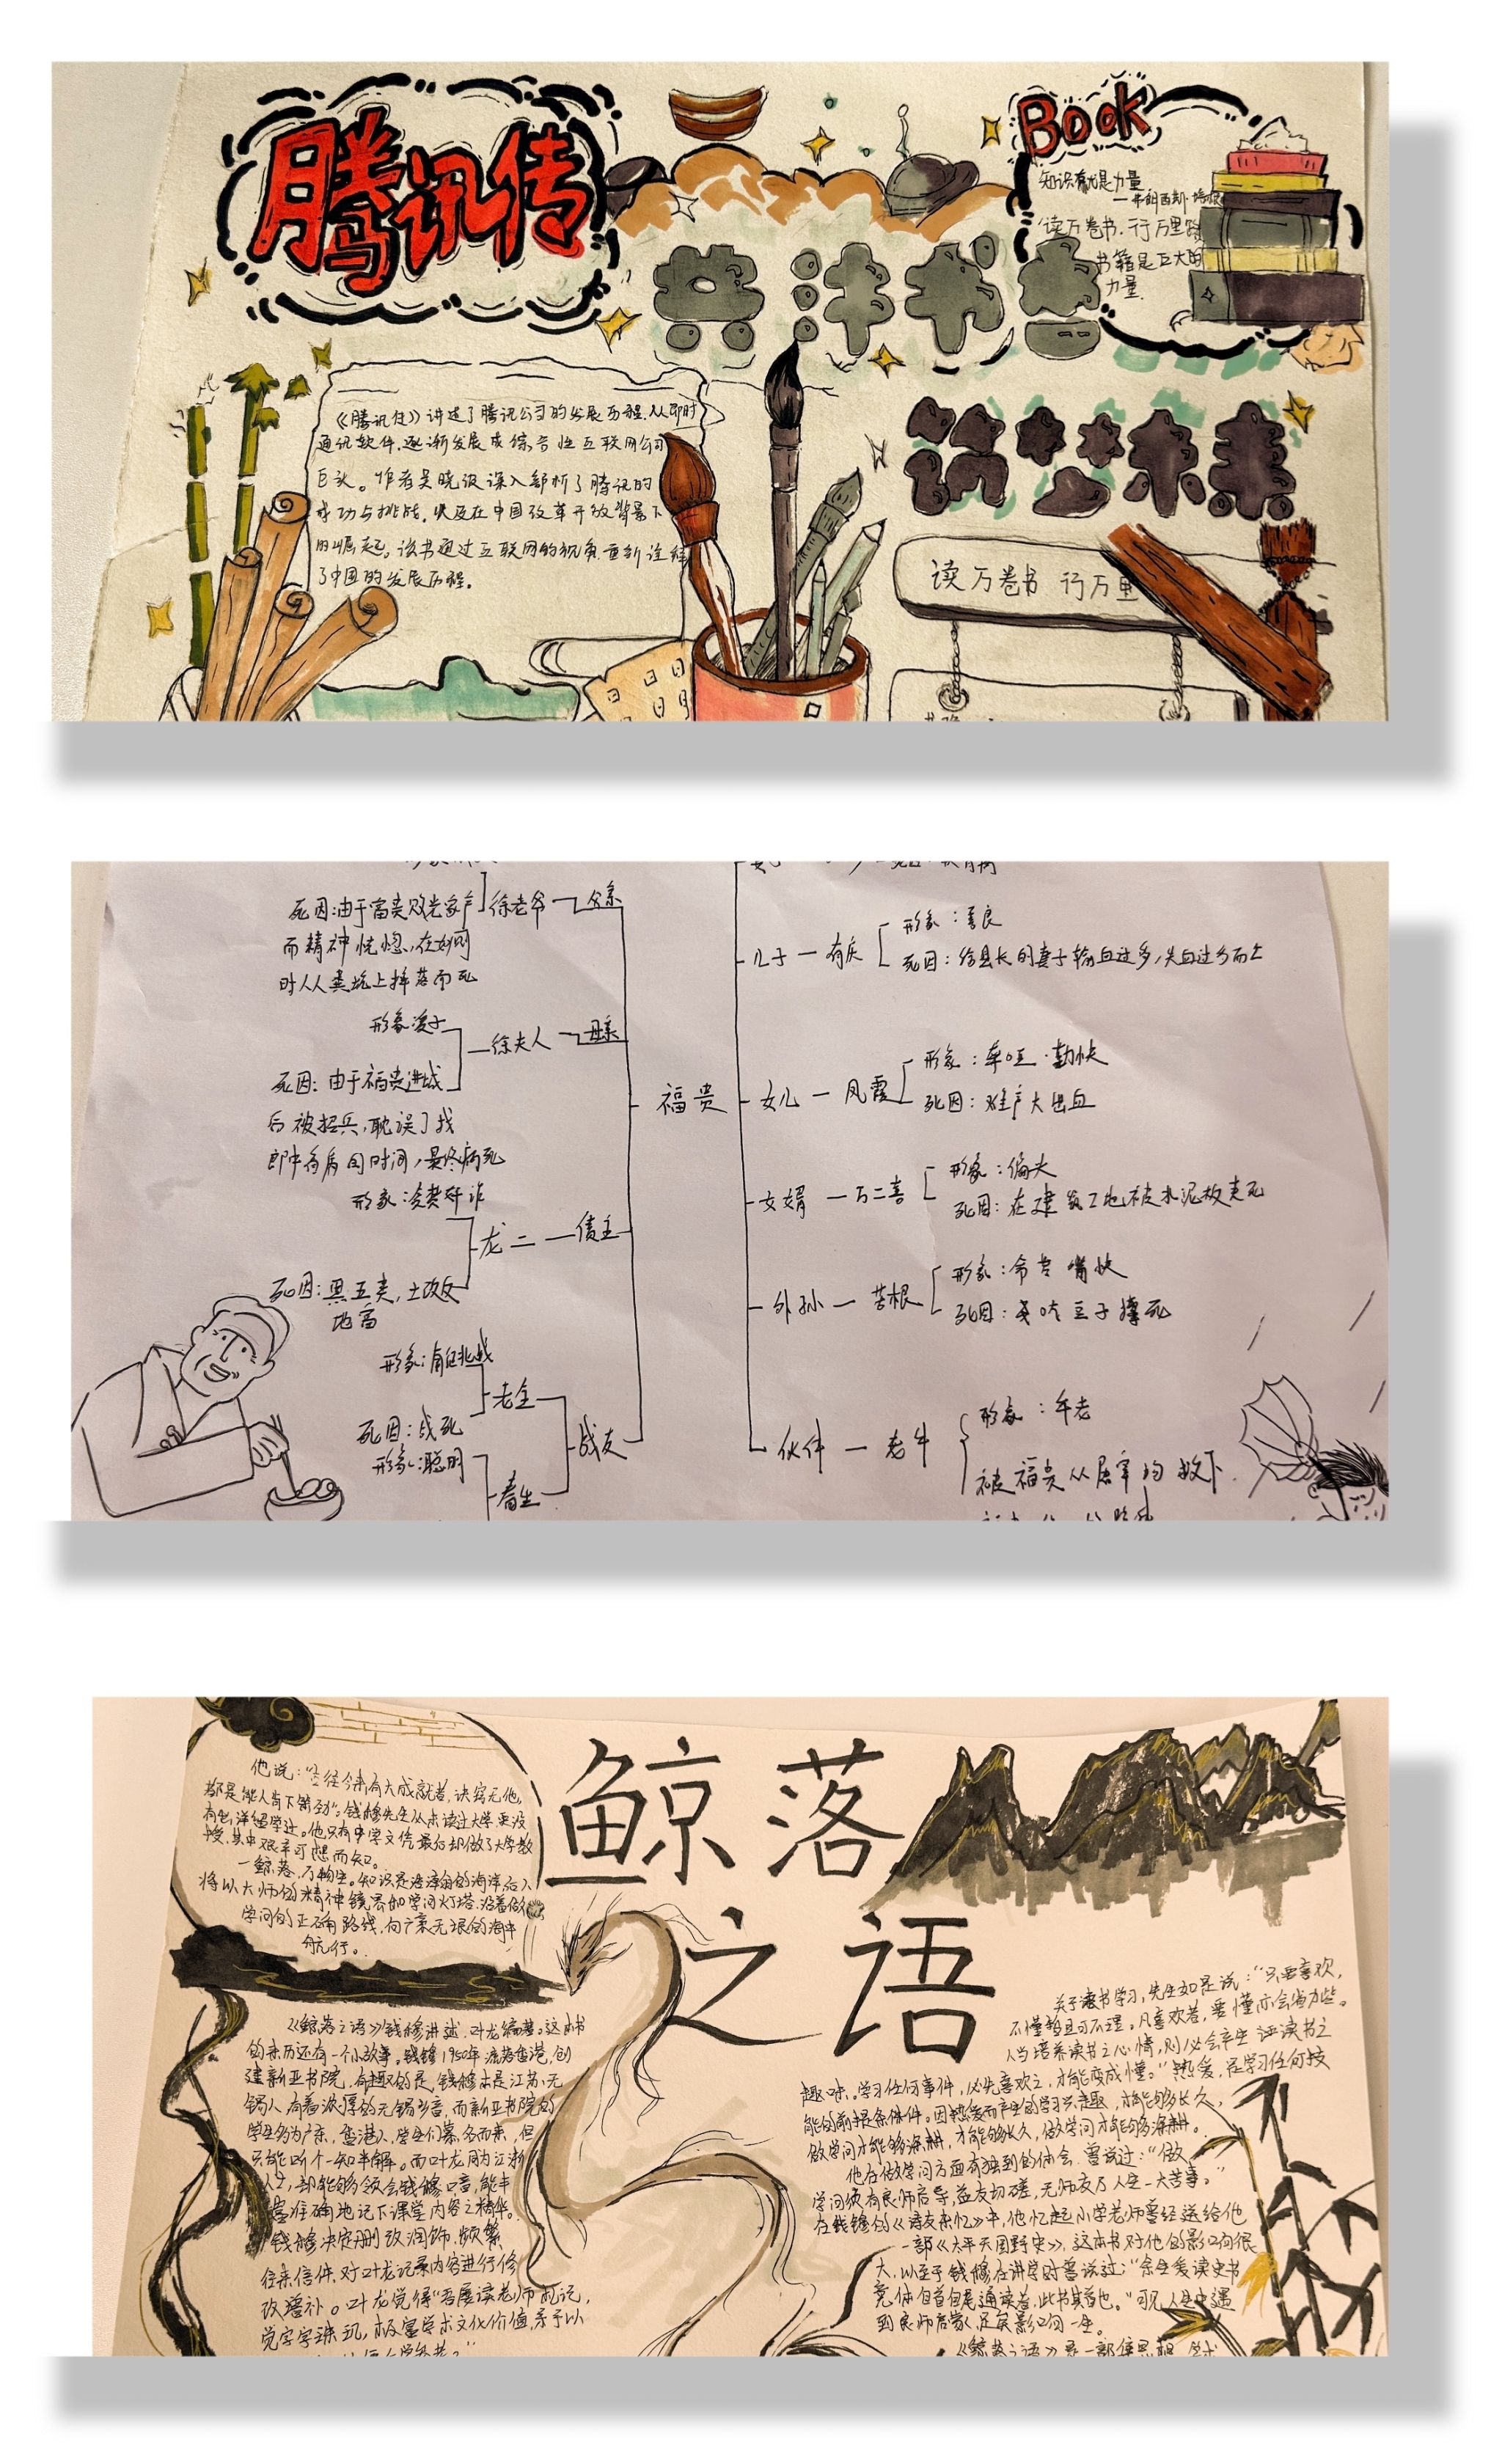 腾讯传
Book
知识就是力量
读万卷书.行万里路
书籍是巨大的
力量.
共沐书香
《腾讯传》讲述了腾讯公司的发展历程.从即时
通讯软件.逐渐发展成综合性互联网公司
巨头。作者吴晓波深入剖析了腾讯的
成功与挑战.以及在中国改革开放背景下
的崛起。该书通过互联网的视角重新诠释
了中国的发展历程。
未来
读万卷书 行万里
死因:由于富贵败光家产
徐老爷
父亲
而精神恍惚,在
时从粪坑上摔落而死
形象:
徐夫人
母亲
死因:由于福贵进城
后被招兵,耽误了找
郎中看病的时间,最终病死
形象:
龙二
债主
死因:黑五类,土改反
地富
形象:
老全
死因:战死
战友
形象:聪明
春生
福贵
儿子
有庆
形象:善良
死因:给县长的妻子输血过多,失血过多而亡
女儿
凤霞
形象:聋哑·勤快
死因:难产大出血
女婿
万二喜
形象:偏头
死因:在建筑工地被水泥板夹死
外孙
苦根
形象:命苦 嘴快
死因:吃豆子撑死
伙伴
老牛
形象:年老
被福贵从屠宰的救下.
鲸落
之语
他说:"古往今来有大成就者,诀窍无他,
都是能人肯下笨劲"。钱穆先生从未读过大学,更没
有出洋留学过。他只有中学文凭最后却做了大学教
授,其中艰辛可想而知。
一鲸落,万物生。知识是浩瀚的海洋,
将以大师的精神镜界如学问灯塔.沿着做
学问的正确路线.向广袤无垠的海中
航行。
《鲸落之语》钱穆讲述.叶龙编著。这本书
的来历还有一个小故事。钱穆1950年流落香港,创
建新亚书院.有趣的是,钱穆本是江苏无
锡人.有着浓厚的无锡乡音,而新亚书院的
学生多为广东,香港人.学生们慕名而来,但
只能听个一知半解。而叶龙因为江浙
人,却能够领会钱穆口音,能丰
富准确地记下课堂内容之精华。
钱穆决定删改润饰.频繁
往来信件.对叶龙记录内容进行修
改增补。叶龙觉得"吾屡读老师
觉字字珠玑,极富学术文化价值,亲予以
关于读书学习,先生如是说:"只要喜欢,
不懂暂且可不理。凡喜欢者,要懂亦会省力些。
人当培养读书之心情,则必会产生证读书之
趣味。学习任何事件,必先喜欢之,才能变成懂。"热爱,是学习任何技
能的前提条件件。因热爱而产生的学习兴趣,才能够长久,
做学问才能够深耕,才能够长久,做学问才能够深耕。
他在做学问方面有独到的体会.曾说过:"做
学问须有良师启导,益友切磋,无师友乃人生一大苦事。"
在钱穆的《师友杂忆》中,他忆起小学老师曾经送给他
一部《太平天国野史》,这本书对他的影响很
大,以至于钱穆在讲学时曾说过:"余生爱读史书
竟体自首自尾通读者,此书其首也。"可见人生中遇
到良师启蒙,足矣影响一生。
《鲸落之语》是一部集思想